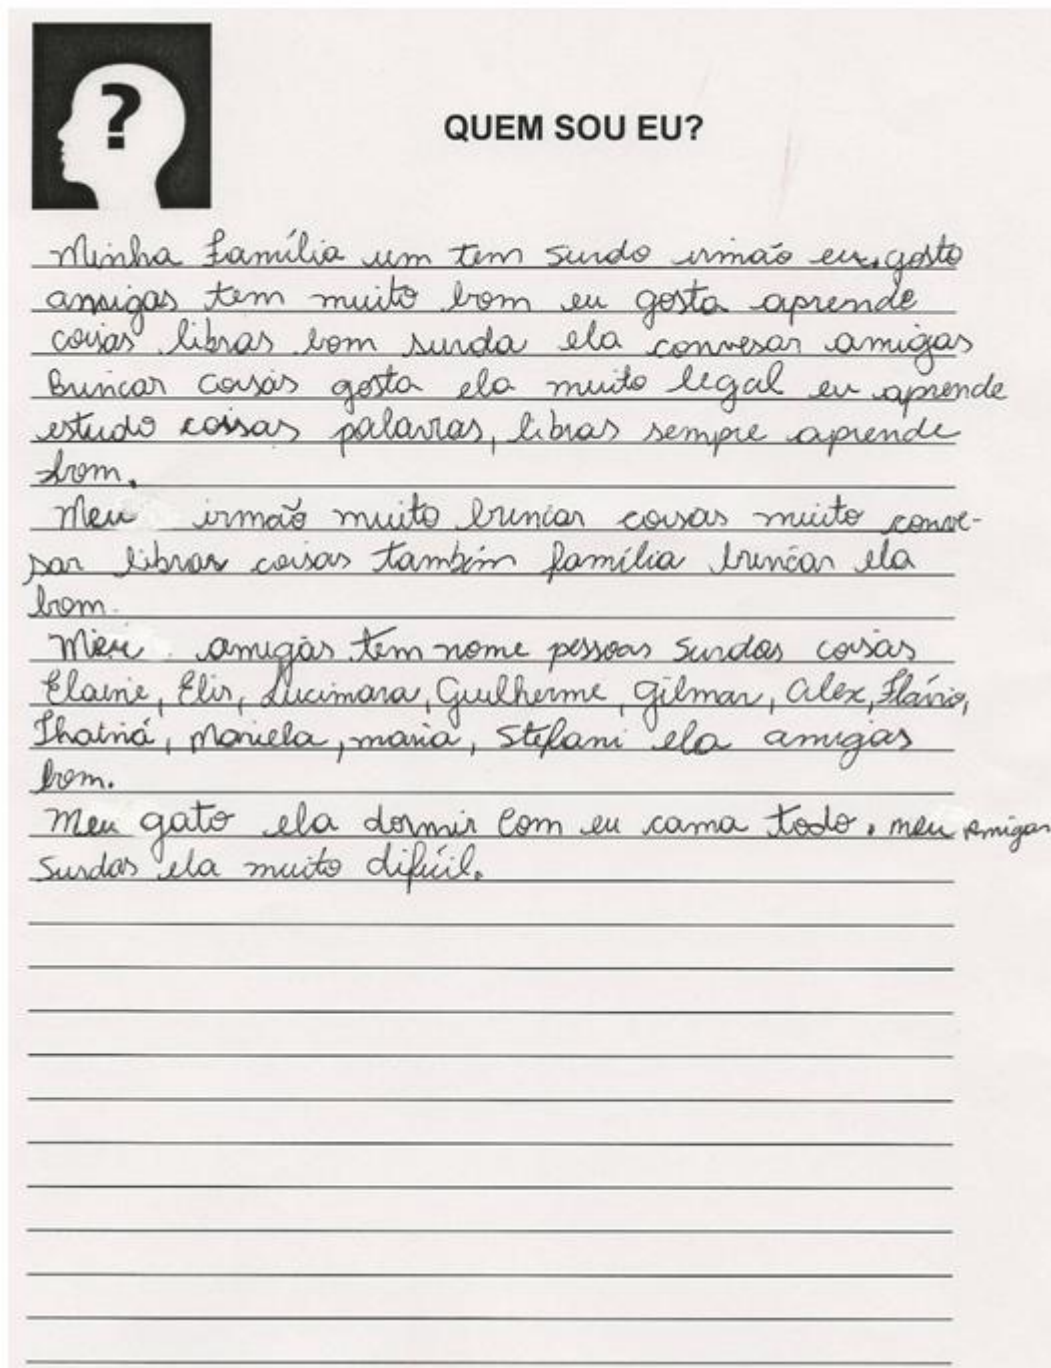 ?
QUEM SOU EU?
Minha família um tem surdo irmão eu. gosto
amigas tem muito bom eu gosta aprende
coisas libras bom surda ela convesar amigas
Brincar coisas gosta ela muito legal eu aprende
estudo coisas palavras, libras sempre aprende
bom.
Meu irmão muito brincar coisas muito conve-
sar libras coisas também família brincar ela
bom.
Meu amigas tem nome pessoas Surdas coisas
Elaine, Elis, Lucimara, Guilherme, Gilmar, Alex, Flávio,
Thainá, Mariela, maria, Stefani ela amigas
bom.
Meu gato ela dormir com eu cama todo. meu amigas
Surdas ela muito difícil.